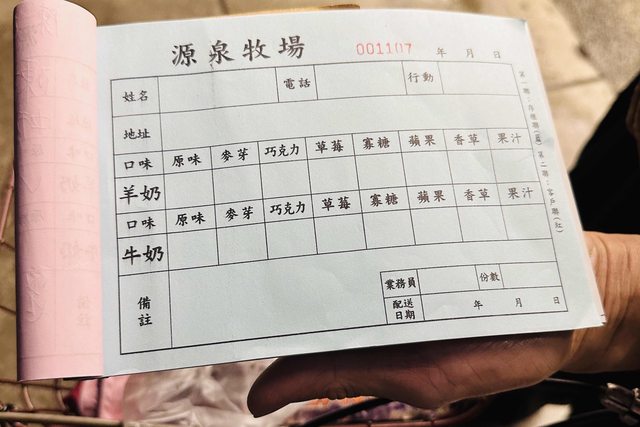 源泉牧場 001107 年 月 日
姓名 電話 行動
地址
口味 原味 麥芽 巧克力 草莓 寡糖 蘋果 香草 果汁
羊奶
口味 原味 麥芽 巧克力 草莓 寡糖 蘋果 香草 果汁
牛奶
備註
業務員 份數
配送日期 年 月 日
第一聯：存根聯(藍) 第二聯：客戶聯(紅)